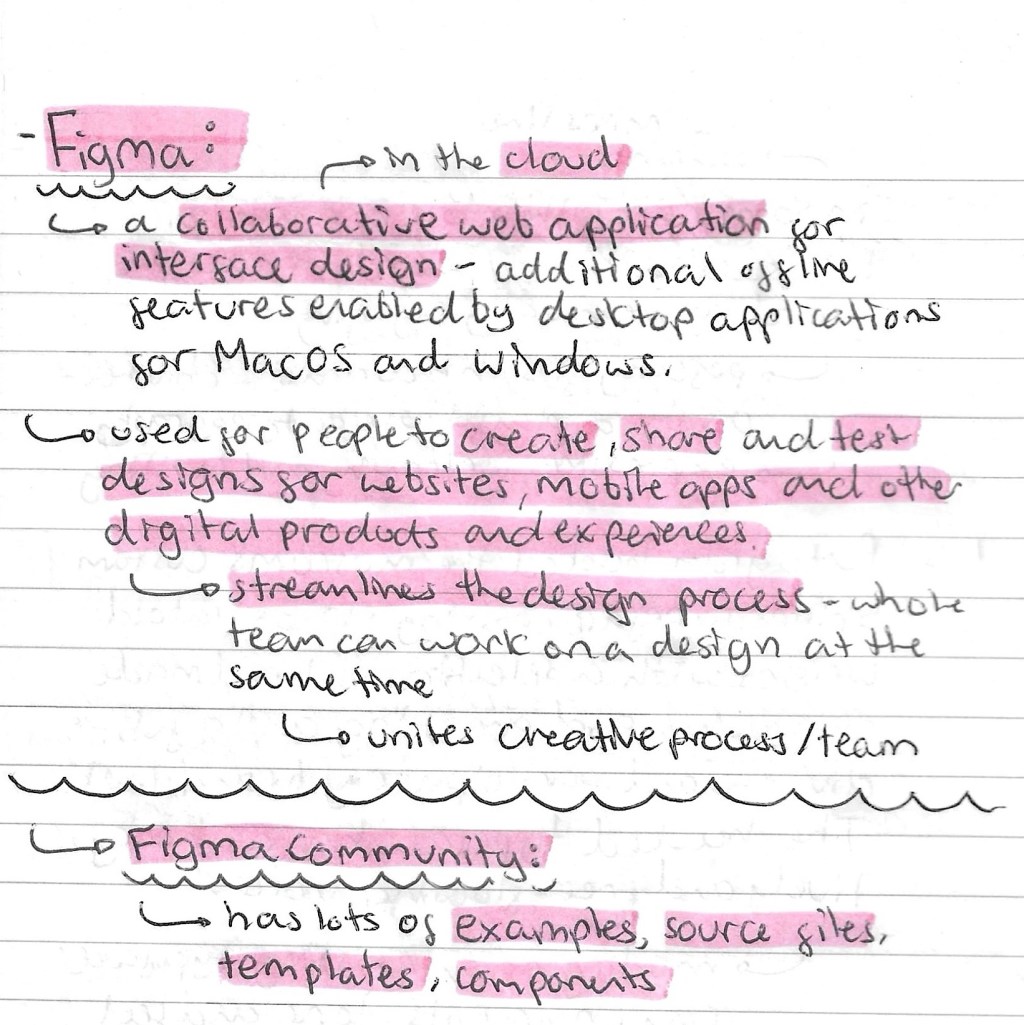 - Figma:
→ in the cloud
↳ a collaborative web application for
interface design - additional offline
features enabled by desktop applications
for MacOS and Windows.
↳ used for people to create, share and test
designs for websites, mobile apps and other
digital products and experiences.
↳ streamlines the design process - whole
team can work on a design at the
same time
↳ unites creative process/team
↳ Figma community:
↳ has lots of examples, source files,
templates, components